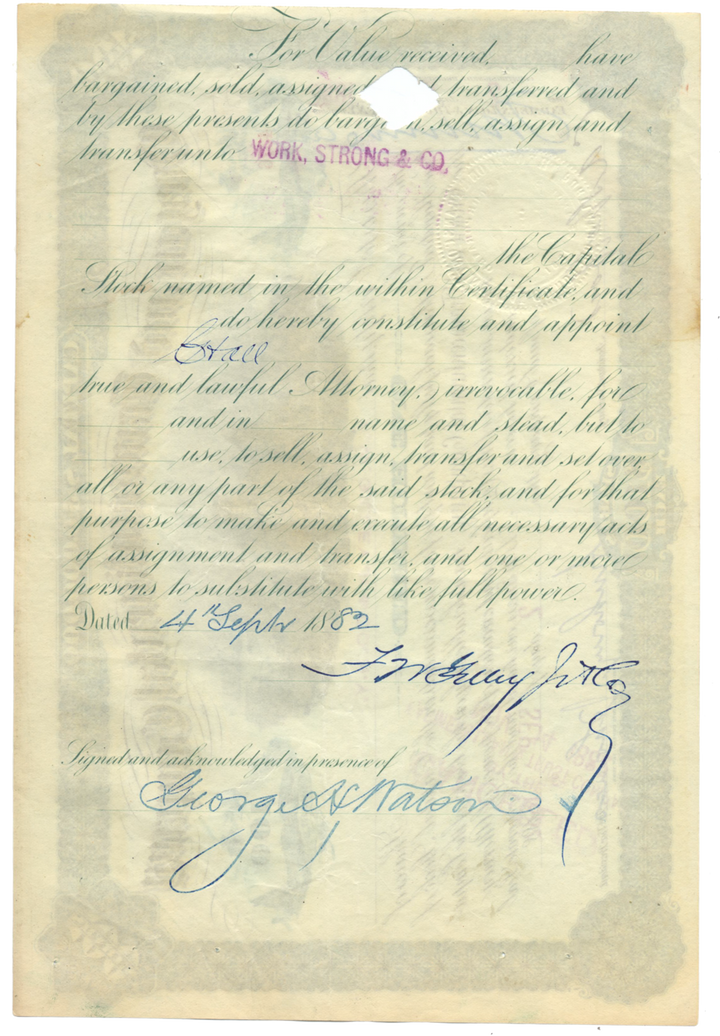 For Value received, have
bargained, sold, assigned transferred and
by these presents do bargain, sell, assign and
transfer unto WORK, STRONG & CO.
the Capital
Stock named in the within Certificate, and
do hereby constitute and appoint
true and lawful Attorney, irrevocable, for
and in name and stead, but to
use, to sell, assign, transfer and set over,
all or any part of the said stock, and for that
purpose to make and execute all necessary acts
of assignment and transfer, and one or more
persons to substitute with like full power.
Dated 4th Septr 1882
Signed and acknowledged in presence of
George H Watson